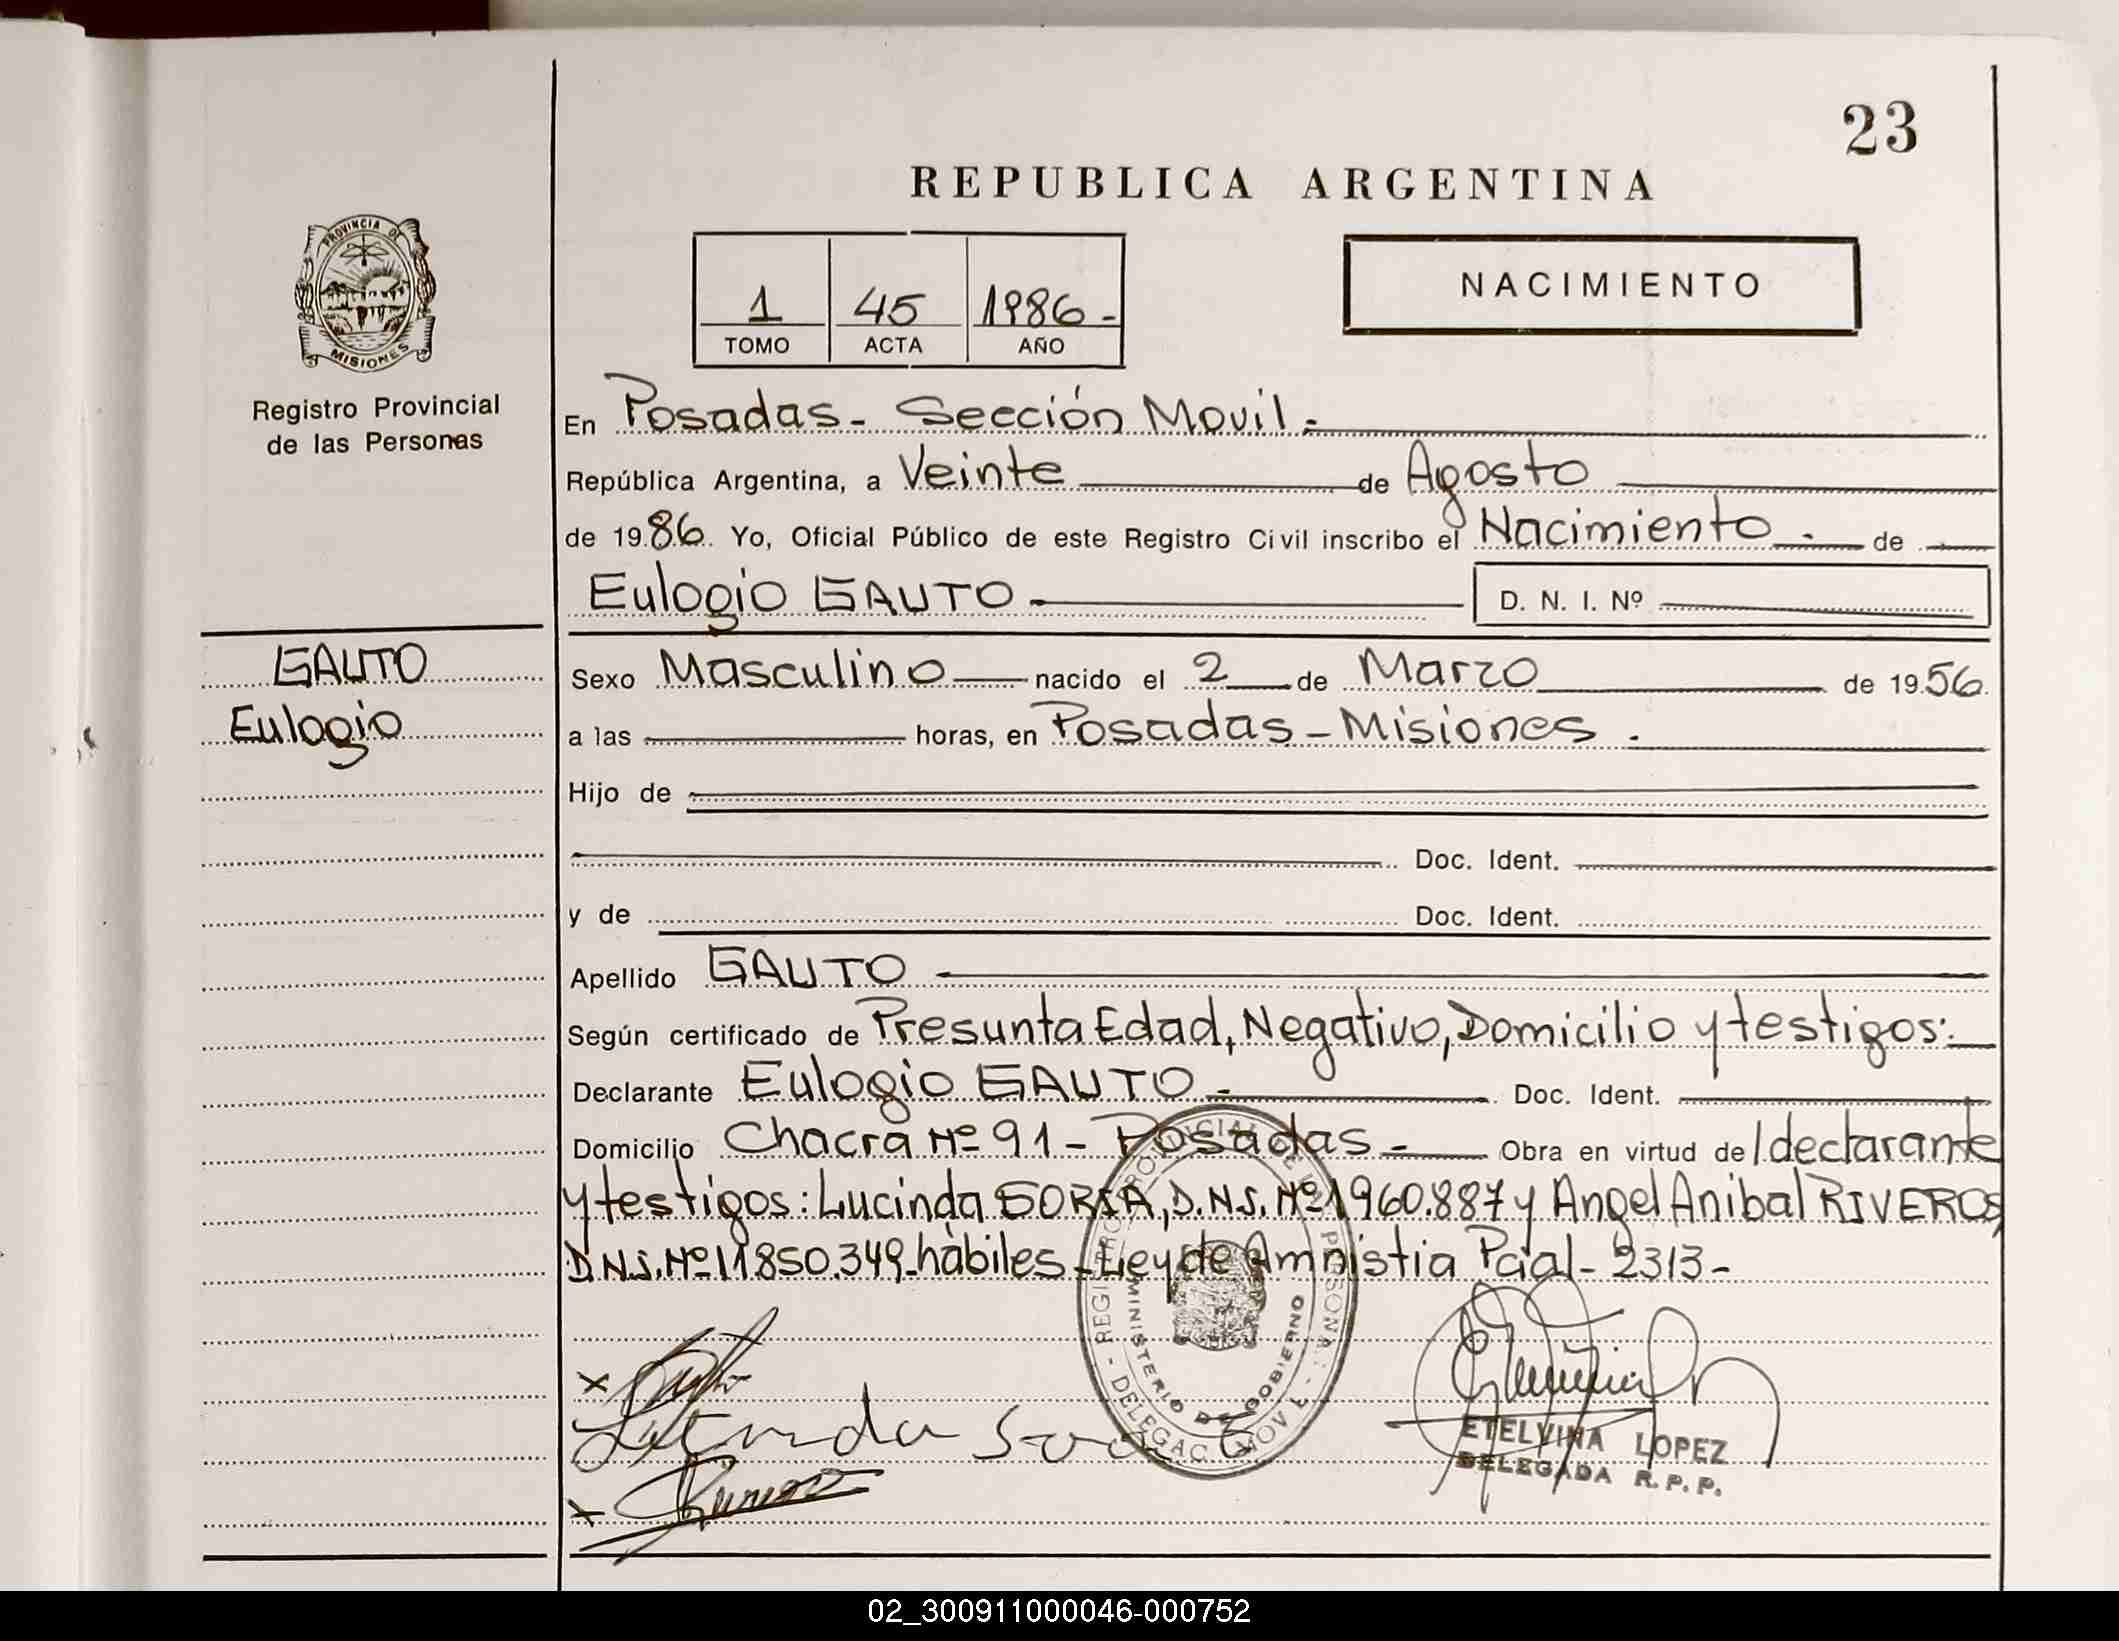 23
REPUBLICA ARGENTINA
1 45 1986-
TOMO ACTA AÑO
NACIMIENTO
PROVINCIA DE
MISIONES
Registro Provincial
de las Personas
En Posadas- Sección Movil.-
República Argentina, a Veinte de Agosto
de 1986. Yo, Oficial Público de este Registro Civil inscribo el Nacimiento . de
Eulogio GAUTO
D. N. I. Nº
GAUTO
Eulogio
Sexo Masculino nacido el 2 de Marzo de 1956.
a las horas, en Posadas-Misiones.
Hijo de
Doc. Ident.
y de Doc. Ident.
Apellido GAUTO
Según certificado de Presunta Edad, Negativo, Domicilio y testigos:
Declarante Eulogio GAUTO.- Doc. Ident.
Domicilio Chacra Nº 91- Posadas.- Obra en virtud de l declarante
y testigos: Lucinda SORIA, D.N.I. Nº 1960.887 y Angel Anibal RIVEROS,
D.N.I. Nº 11850.349-hábiles-Ley de Amnistia Pcial-2313-
REGISTRO PROVINCIAL DE LAS PERSONAS
MINISTERIO DE GOBIERNO
DELEGAC. MOVIL
ETELVINA LOPEZ
DELEGADA R.P.P.
02_300911000046-000752